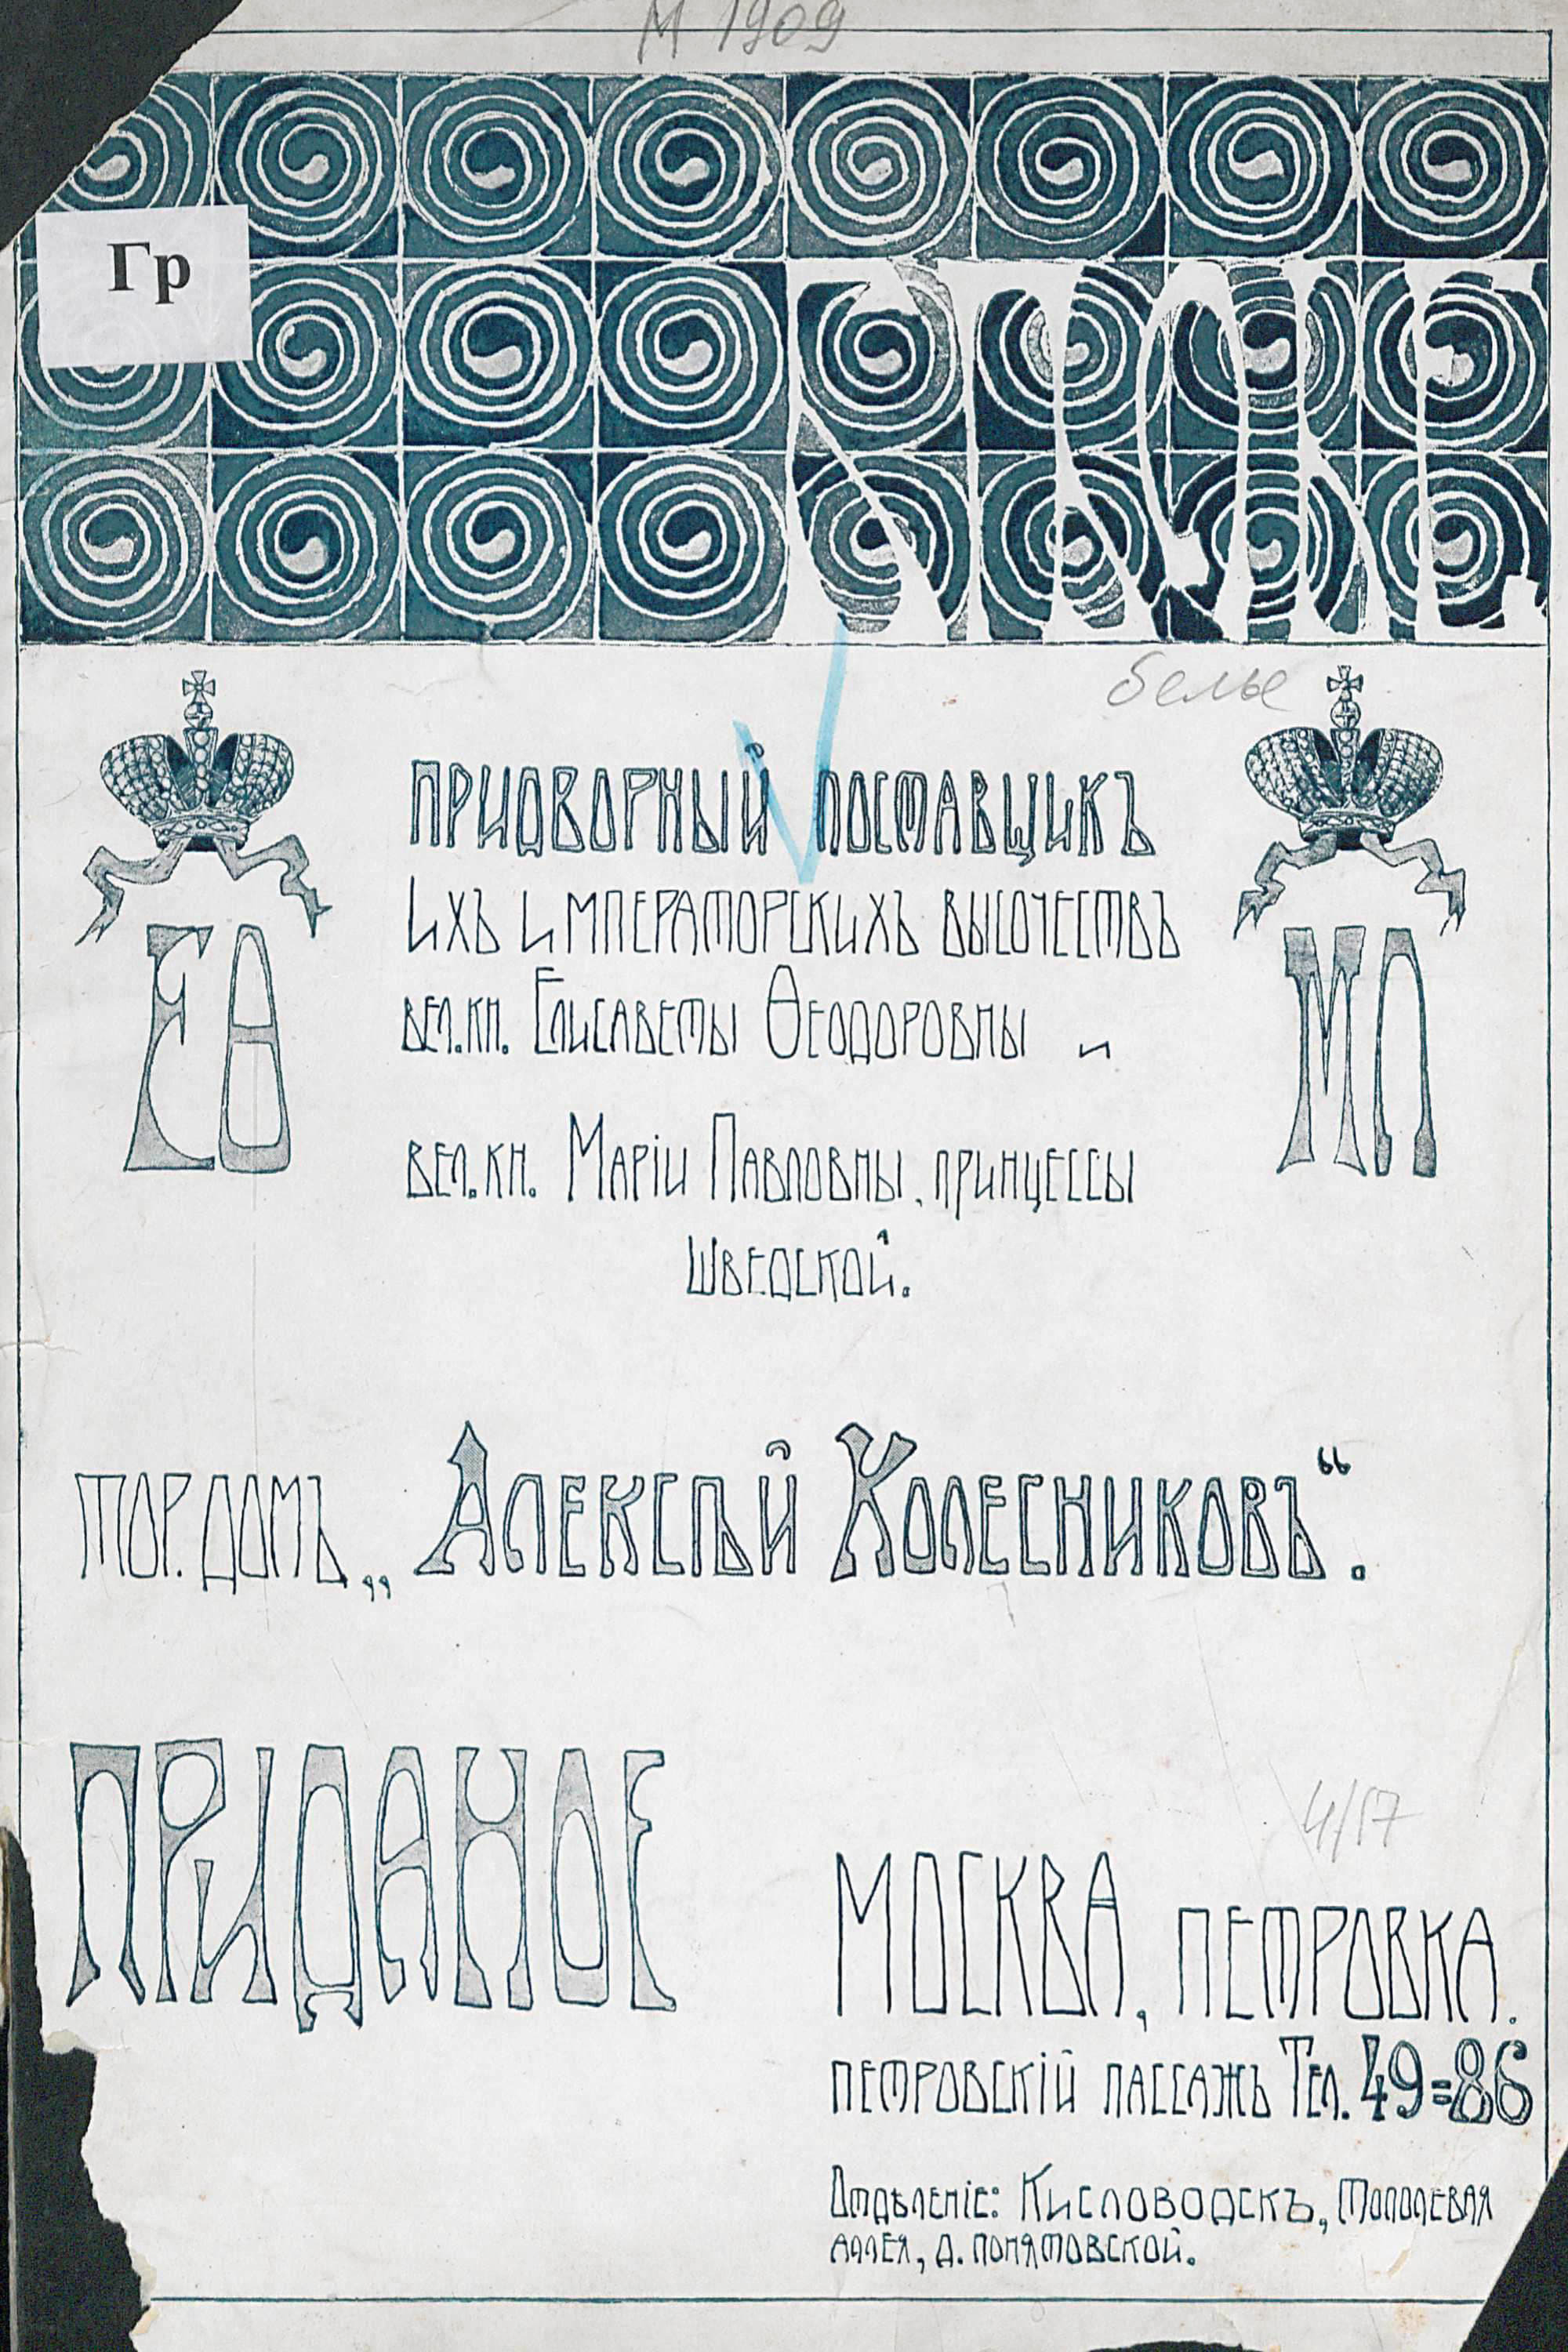 М 1909
Гр
БѢЛЬЕ
белье
ПРИДВОРНЫЙ ПОСТАВЩИКЪ
ИХЪ ИМПЕРАТОРСКИХЪ ВЫСОЧЕСТВЪ
ВЕЛ.КН. ЕЛИСАВЕТЫ ѲЕОДОРОВНЫ и
ЕѲ
МП
ВЕЛ.КН. МАРІИ ПАВЛОВНЫ, ПРИНЦЕССЫ
ШВЕДСКОЙ.
ТОР. ДОМЪ „АЛЕКСѢЙ КОЛЕСНИКОВЪ“.
ПРИДАНОЕ
4/17
МОСКВА, ПЕТРОВКА.
ПЕТРОВСКІЙ ПАССАЖЪ ТЕЛ. 49=86
ОТДѢЛЕНІЕ: КИСЛОВОДСКЪ, ТОПОЛЕВАЯ
АЛЛЕЯ, Д. ПОНЯТОВСКОЙ.